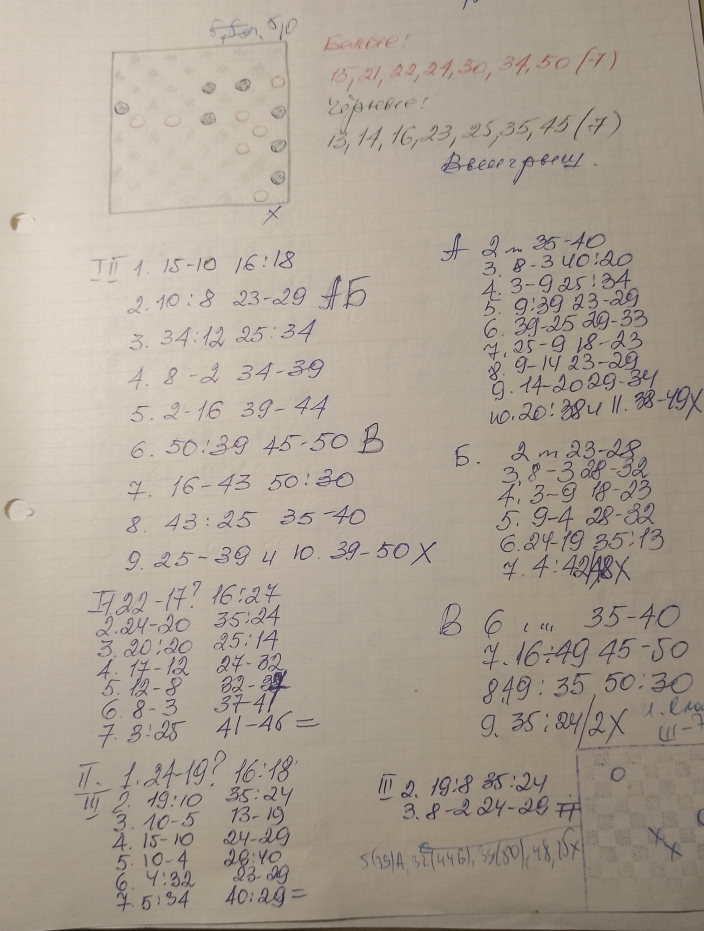 Белые:
15, 21, 22, 24, 30, 34, 50 (-7)
Чёрные:
13, 14, 16, 23, 25, 35, 45 (-7)
Выигрыш.
X
III 1. 15-10 16:18
2. 10:8 23-29 А Б
3. 34:12 25:34
4. 8-2 34-39
5. 2-16 39-44
6. 50:39 45-50 В
7. 16-43 50:30
8. 43:25 35-40
9. 25-39 и 10. 39-50 X
22-17? 16:27
2. 24-20 35:24
3. 20:20 25:14
4. 17-12 27-32
5. 12-8
6. 8-3 37-41
7. 3:25 41-46 =
II. 1. 24-19? 16:18
III 2. 19:10 35:24
3. 10-5 13-19
4. 15-10 24-29
5. 10-4 29:40
6. 4:32 23-29
7. 5:34 40:29 =
А 2 ... 35-40
3. 8-3 40:20
4. 3-9 25:34
5. 9:39 23-29
6. 39-25 29-33
7. 25-9 18-23
8. 9-14 23-29
9. 14-20 29-34
10. 20:38 и 11. 38-49 X
Б. 2 ... 23-28
3. 8-3 28-32
4. 3-9 18-23
5. 9-4 28-32
6. 24-19 35:13
7. 4:42/48 X
В 6 ... 35-40
7. 16÷49 45-50
8. 49:35 50:30
9. 35:24/2 X
III 2. 19:8 35:24
3. 8-2 24-29
III-7